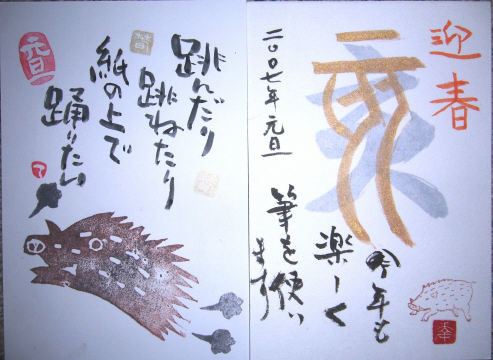 迎春
二〇〇七年 元旦
亥
今年も
楽しく
筆を使い
ます
元旦
跳んだり
跳ねたり
紙の上で
踊りたい
て